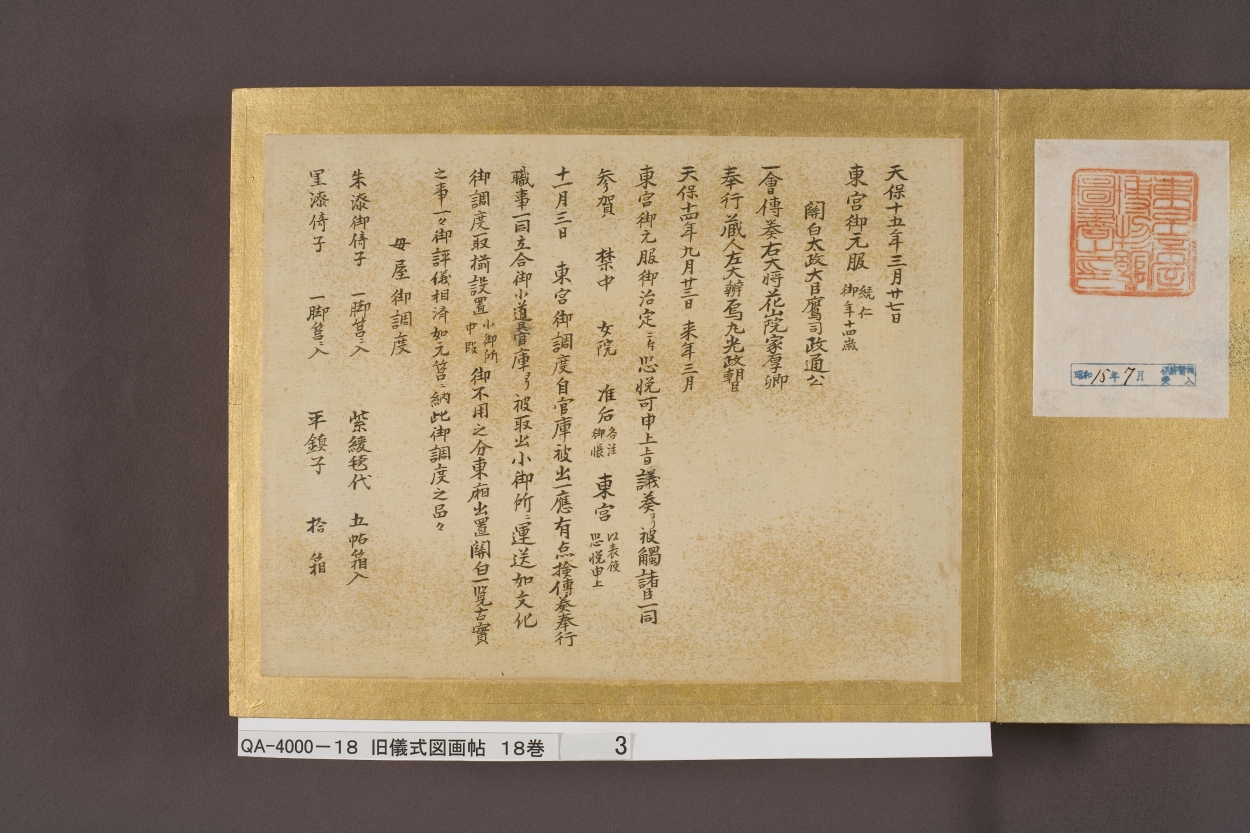 天保十五年三月廿七日
東宮御元服 統仁 御年十四歳
關白太政大臣鷹司政通公
一會傳奏右大将花山院家厚卿
奉行蔵人左大辨烏丸光政朝臣
天保十四年九月廿三日 来年三月
東宮御元服御治定ニ付恐悦可申上旨議奏ヨリ被觸諸臣一同
参賀 禁中 女院 准后 各注 御帳 東宮 以表使 恐悦申上
十一月三日 東宮御調度自官庫被出一應有点撿傳奏奉行
職事一同立合御小道具官庫ヨリ被取出小御所ニ運送如文化
御調度取揃設置 小御所 中段 御不用之分東廂出置關白一覧古實
之事一々御評儀相済如元筥ニ納此御調度之品々
母屋御調度
朱漆御倚子 一脚筥ニ入 紫綾毯代 五帖箱入
黒漆倚子 一脚筥ニ入 平鎮子 拾箱
昭和15年7月
QA-4000－18 旧儀式図画帖 18巻 3